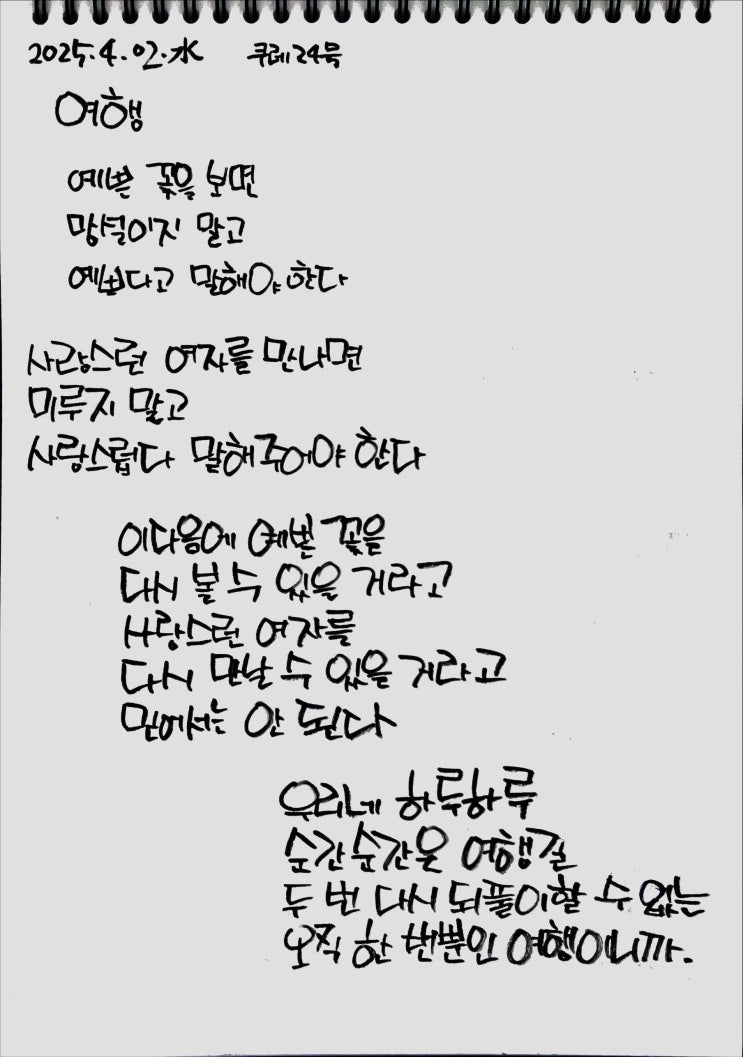 2025.4.02.水 쿠레24묵
여행
예쁜 꽃을 보면
망설이지 말고
예쁘다고 말해야 한다
사랑스런 여자를 만나면
미루지 말고
사랑스럽다 말해주어야 한다
이다음에 예쁜 꽃을
다시 볼 수 있을 거라고
사랑스런 여자를
다시 만날 수 있을 거라고
믿어서는 안 된다
우리네 하루하루
순간순간은 여행길
두 번 다시 되풀이할 수 없는
오직 한 번뿐인 여행이니까.